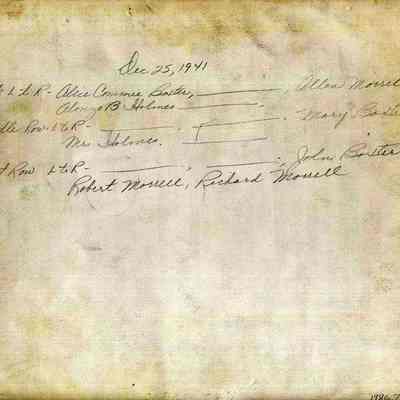 Dec 25, 1941
L to R - Alice Conviree Baxter, ________, Allan Morrell
Alonzo B. Holmes ________
Row L to R - ________, ________ Mary Baxte
Mr. Holmes. ________
Row L to R - ________, ________, John Baxter
Robert Morrell, Richard Morrell